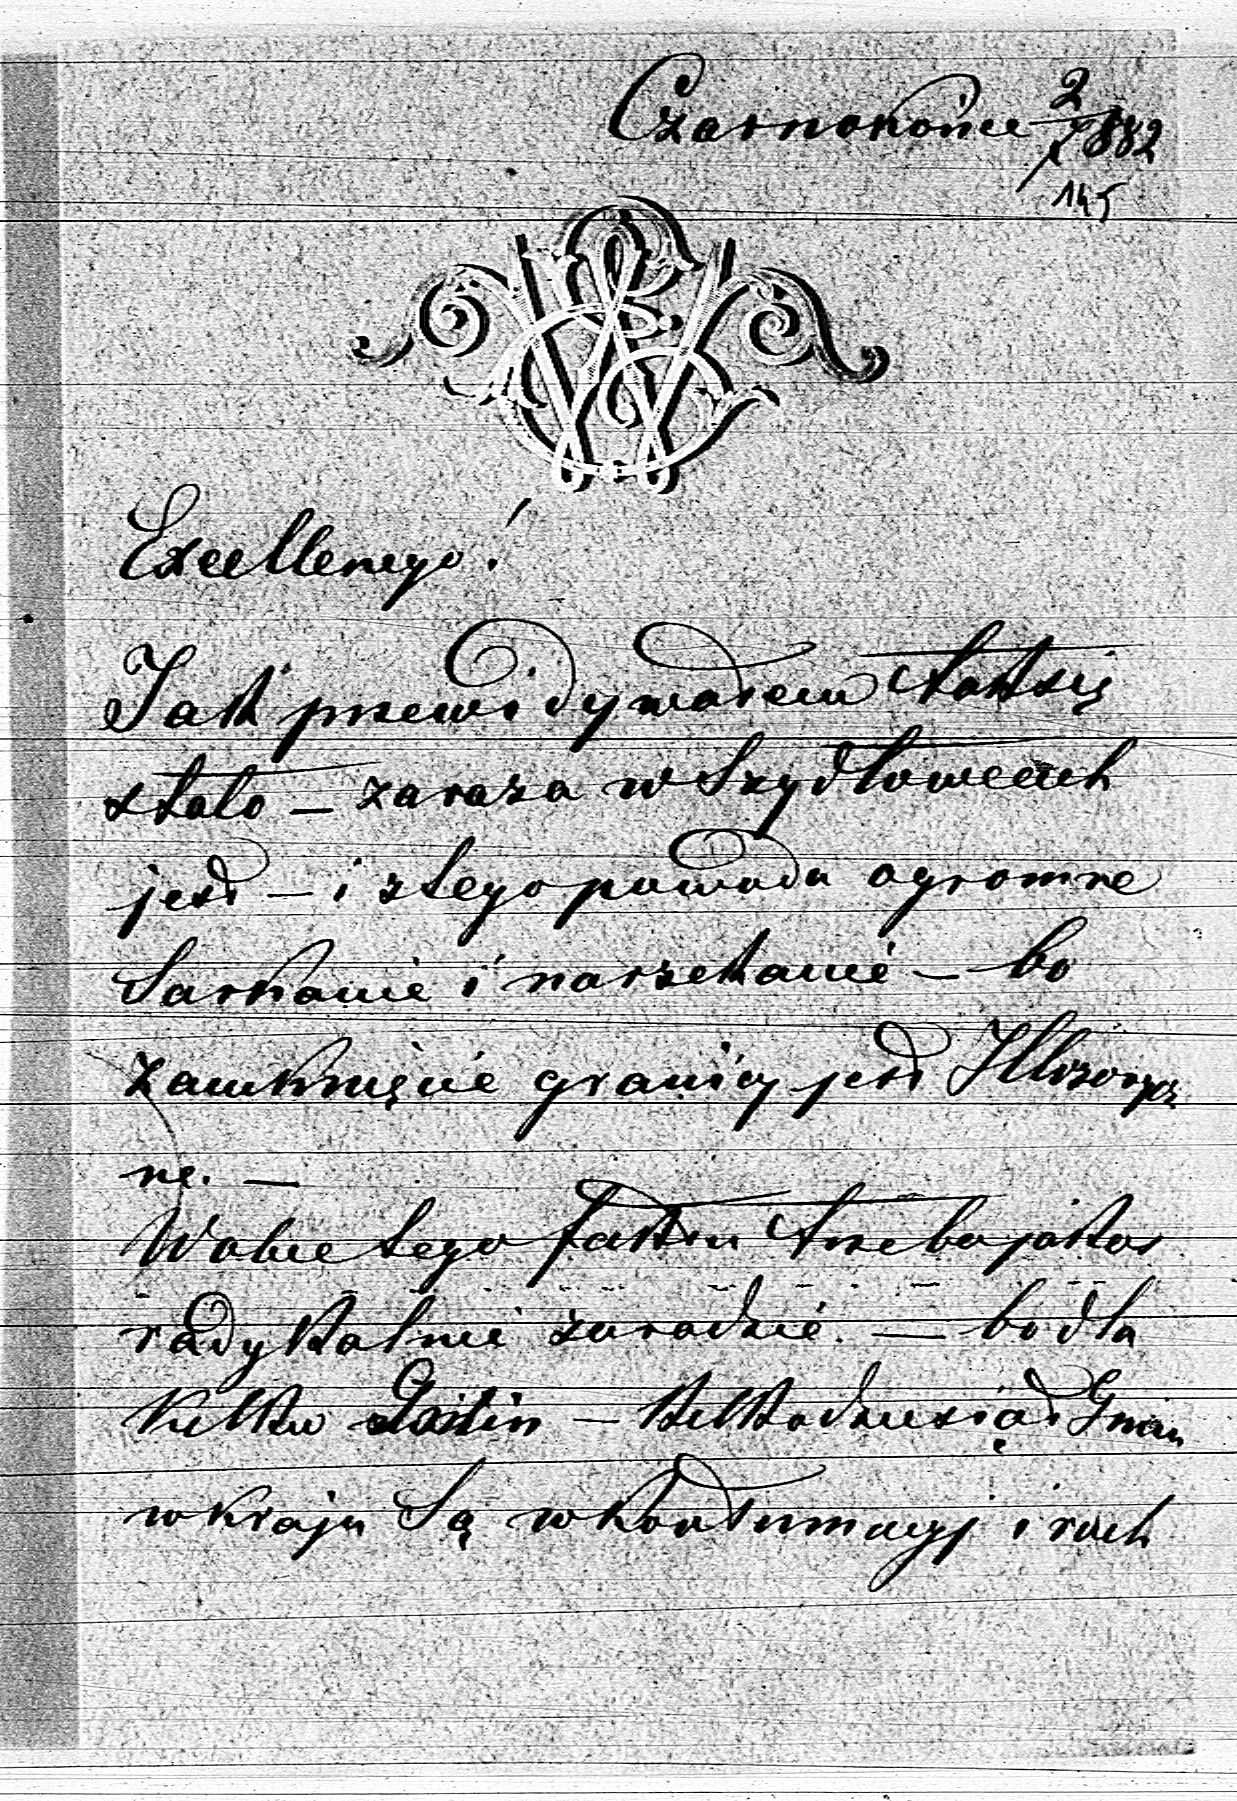 Czarnokońce 2/X 882
145
Excellencyo!
Jak przewidywałem tak się
stało – zaraza w Szydłowcach
jest – i z tego powodu ogromne
Sarkanie i narzekanie – bo
zamknięcie granicy jest Illuzorycz
ne. –
Wobec tego faktu trzeba jakoś
radykalnie zaradzić. – bo dla
kilku – kilkadziesiąt Gmin
w kraju Są w kontumacyj i ruch